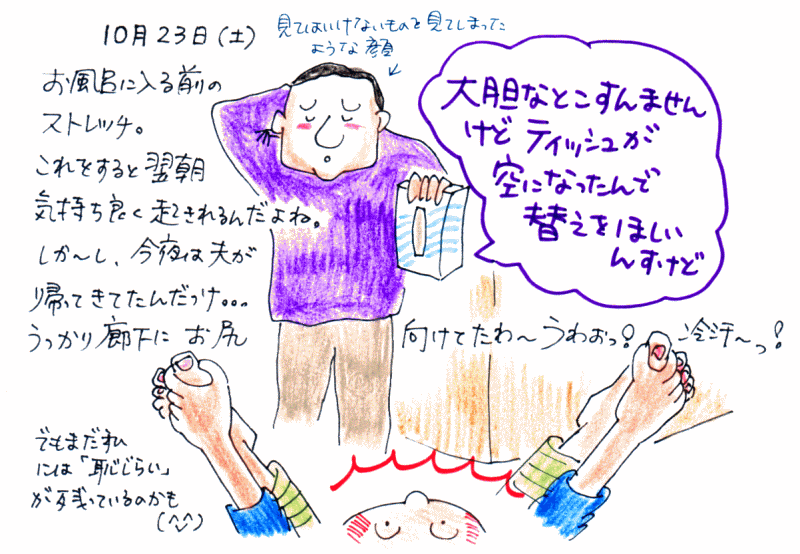 10月23日(土)
見てはいけないものを見てしまった
ような顔
お風呂に入る前の
ストレッチ。
これをすると翌朝
気持ち良く起きれるんだよね。
しか〜し、今夜は夫が
帰ってきてたんだっけ。。。
うっかり廊下に お尻 向けてたわ〜うわおっ! 冷汗〜っ!
大胆なとこすんません
けど ティッシュが
空になったんで
替えをほしい
んすけど
でもまだ私
には「恥じらい」
が残っているのかも
(^^)